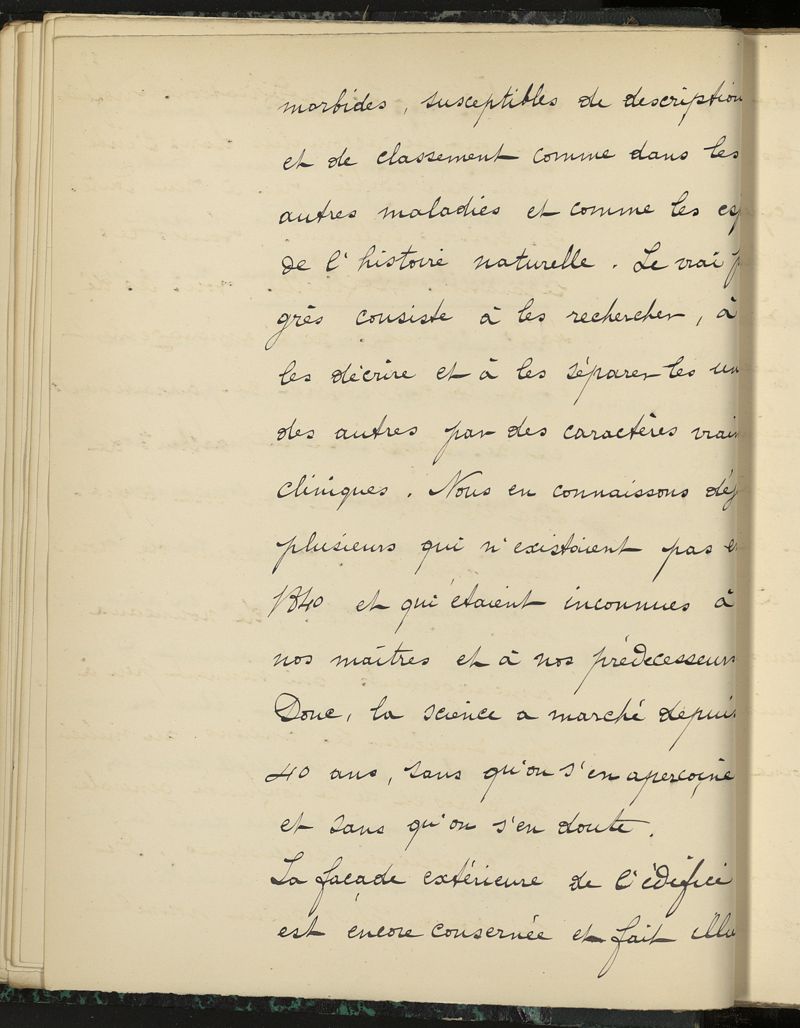 morbides, susceptibles de description
et de classement comme dans les
autres maladies et comme les esp
de l'histoire naturelle. Le vrai p
grès consiste à les rechercher, à
les décrire et à les séparer les un
des autres par des caractères vrai
cliniques. Nous en connaissons déj
plusieurs qui n'existaient pas e
1840 et qui étaient inconnues à
nos maîtres et à nos prédecesseurs
Donc, la science a marché depuis
40 ans, sans qu'on s'en aperçoive
et sans qu'on s'en doute.
La façade extérieure de l'édifice
est encore conservée et fait illu